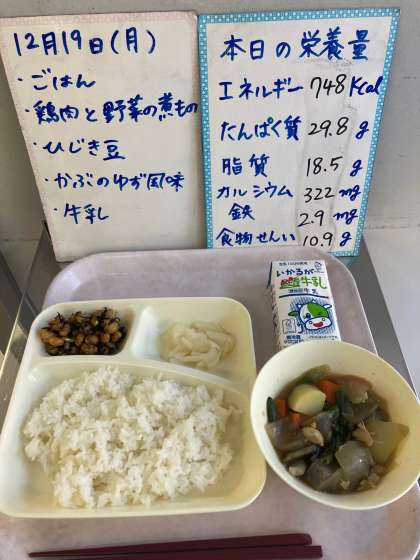 12月19日(月)
・ごはん
・鶏肉と野菜の煮もの
・ひじき豆
・かぶのゆず風味
・牛乳
本日の栄養量
エネルギー 748 Kcal
たんぱく質 29.8 g
脂質 18.5 g
カルシウム 322 mg
鉄 2.9 mg
食物せんい 10.9 g
いかるが
牛乳